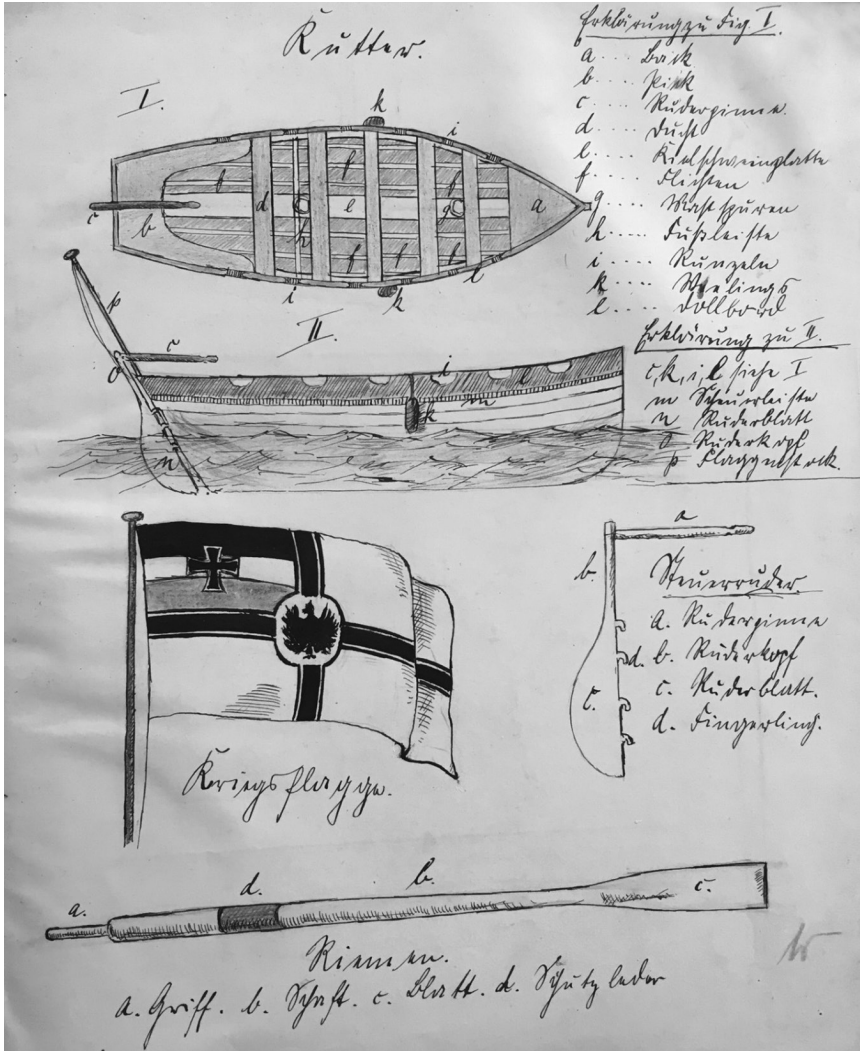 Kutter.
Erklärung zu Fig. I.
a .... Back
b .... Piek
c .... Ruderpinne.
d .... Ducht
e .... Kielschweinplatte
f .... Flichten
g .... Mastspuren
h .... Fußleiste
i .... Runzeln
k .... Wielings
l .... Dollbord
I.
k
i
f
f
f
d
e
g
a
c
b
h
f
f
f
l
i
k
II.
Erklärung zu II.
c, k, i, l siehe I
m Scheuerleiste
n Ruderblatt
o Ruderkopf
p Flaggenstock.
p
c
o
i
l
m
k
n
a
b.
Steuerruder.
a. Ruderpinne
d. b. Ruderkopf
c. c. Ruderblatt.
d. Fingerling.
Kriegsflagge.
a.
d.
b.
c.
Riemen.
a. Griff. b. Schaft. c. Blatt. d. Schutzleder